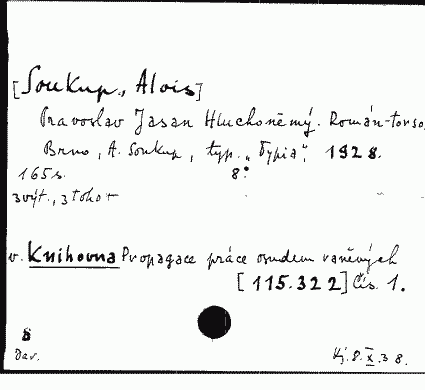 [Soukup, Alois]
Pravoslav Jasan Hluchoněmý. Román-torso,
Brno, A. Soukup, typ. „Typia", 1928.
165 s. 8°
3 výt., 3 tohot
v. Knihovna Propagace práce osudem raněných
[115.322] Čís. 1.
8
Dav. Kj. 8. X. 38.